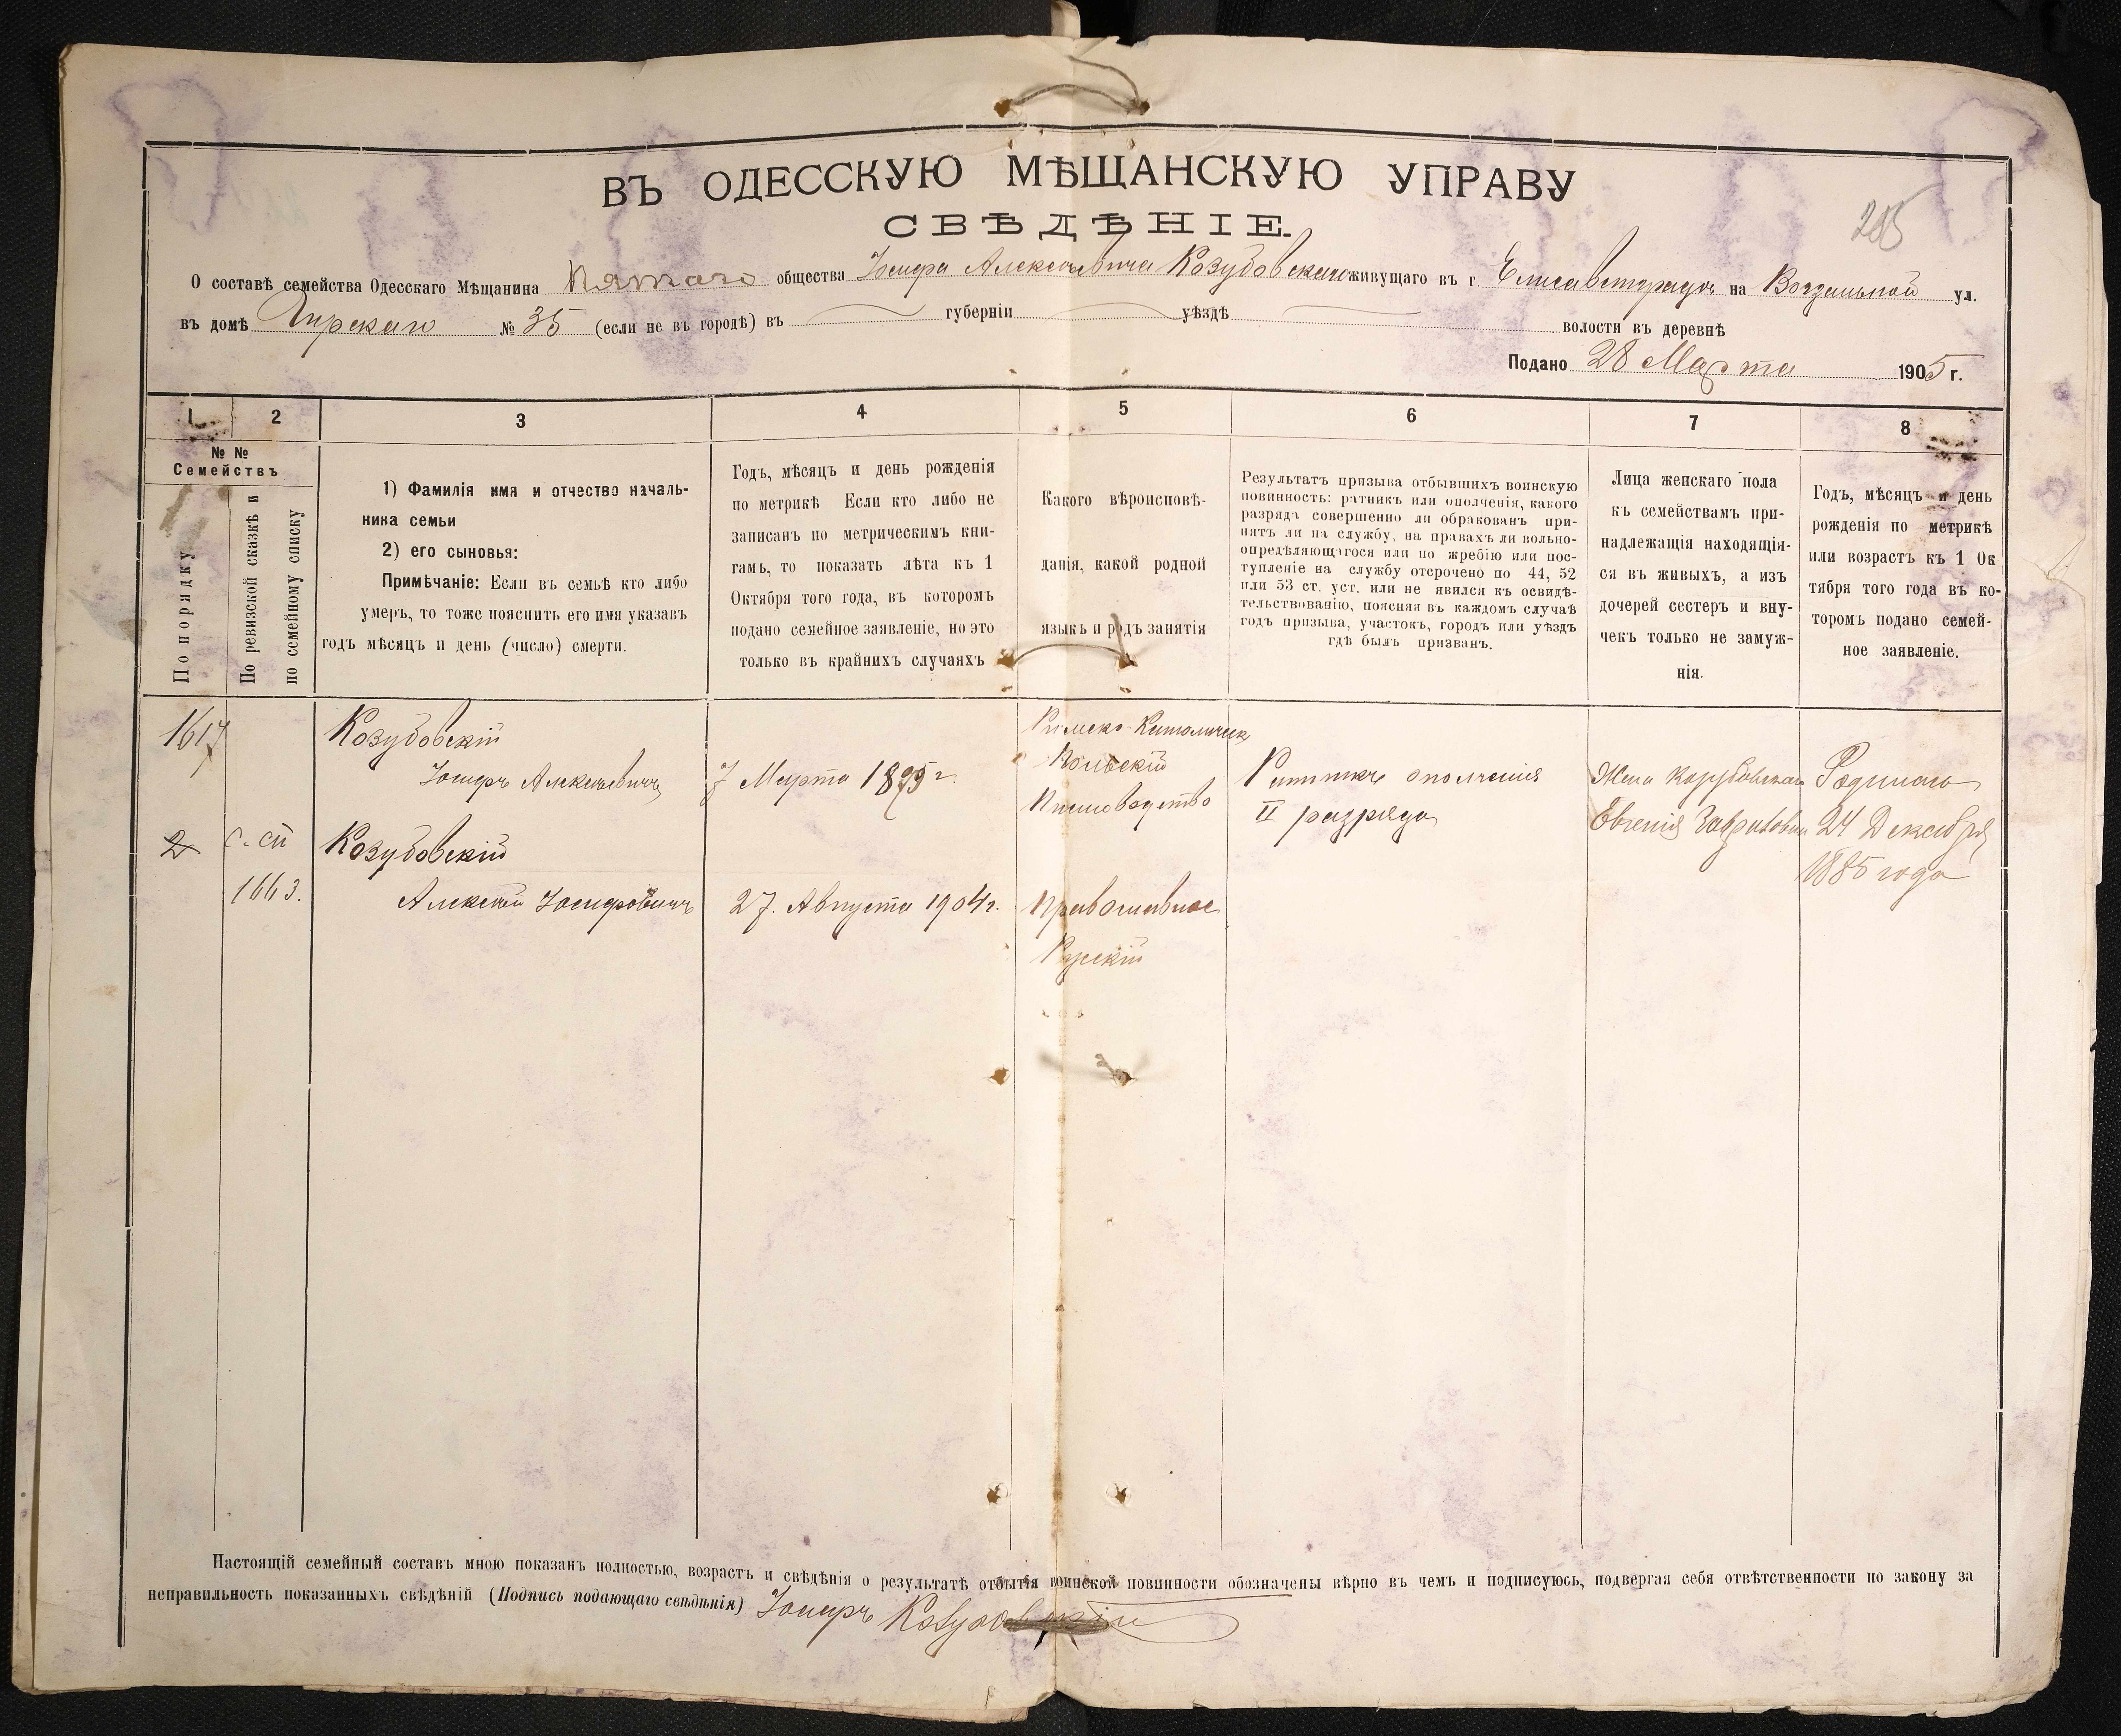 ВЪ ОДЕССКУЮ МѢЩАНСКУЮ УПРАВУ
СВѢДѢНІЕ.
285
О составѣ семейства Одесскаго Мѣщанина Пятаго общества Іосифа Алексѣевича Козубовскаго живущаго въ г. Елисаветградѣ на Вокзальной ул.
въ домѣ № 35 (если не въ городѣ) въ губерніи уѣздѣ волости въ деревнѣ
Подано 28 Марта 1905 г.
1 2 3 4 5 6 7 8
№ №
Семействъ
По порядку
По ревизской сказкѣ и
по семейному списку
1) Фамилія имя и отчество началь-
ника семьи
2) его сыновья:
Примѣчаніе: Если въ семьѣ кто либо
умеръ, то тоже пояснить его имя указавъ
годъ мѣсяцъ и день (число) смерти.
Годъ, мѣсяцъ и день рожденія
по метрикѣ Если кто либо не
записанъ по метрическимъ кни-
гамъ, то показать лѣта къ 1
Октября того года, въ которомъ
подано семейное заявленіе, но это
только въ крайнихъ случаяхъ
Какого вѣроисповѣ-
данія, какой родной
языкъ и родъ занятія
Результатъ призыва отбывшихъ воинскую
повинность: ратникъ или ополченія, какого
разряда совершенно ли обракованъ при-
нятъ ли на службу, на правахъ ли вольно-
опредѣляющагося или по жребію или пос-
тупленіе на службу отсрочено по 44, 52
или 53 ст. уст. или не явился къ освидѣ-
тельствованію, поясняя въ каждомъ случаѣ
годъ призыва, участокъ, городъ или уѣздъ
гдѣ былъ призванъ.
Лица женскаго пола
къ семействамъ при-
надлежащія находящія-
ся въ живыхъ, а изъ
дочерей сестеръ и вну-
чекъ только не замуж-
нія.
Годъ, мѣсяцъ и день
рожденія по метрикѣ
или возрастъ къ 1 Ок
тября того года въ ко-
торомъ подано семей-
ное заявленіе.
1617
Козубовскій
Іосифъ Алексѣевичъ
7 Марта
Римско-Католическ
Польскій
Пчеловодство
Ратникъ ополченія
II разряда
Жена Козубовскаго
Евгенія
Родилась
24 Декабря
1885 года
2
с. сп
1663.
Козубовскій
Алексѣй Іосифовичъ
27. Августа 1904 г.
Православное
Рускій
Настоящій семейный составъ мною показанъ полностью, возрастъ и свѣдѣнія о результатѣ отбытія воинской повинности обозначены вѣрно въ чемъ и подписуюсь, подвергая себя отвѣтственности по закону за
неправильность показанныхъ свѣдѣній (Подпись подающаго свѣдѣнія) Іосифъ Козубовскій